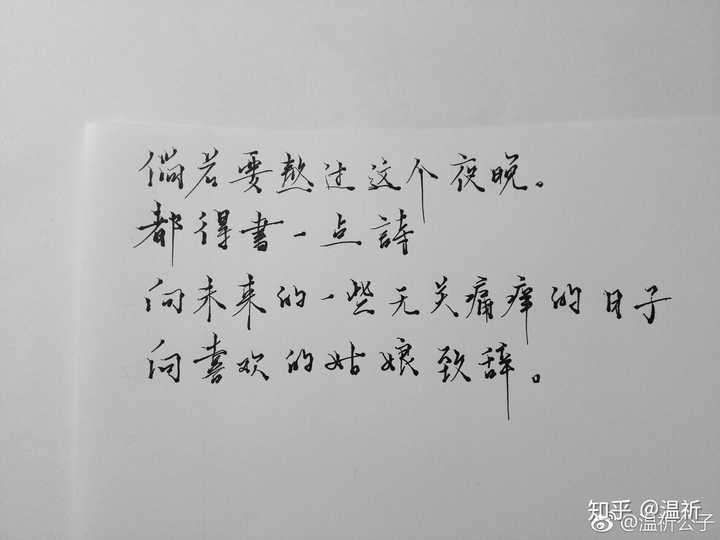 倘若要熬过这个夜晚。
都得書一点詩
向未来的一些无关痛痒的日子
向喜欢的姑娘致辞。
知乎 @温祈
@温祈公子